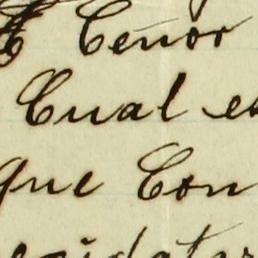 Cenor
Cual es
que Con